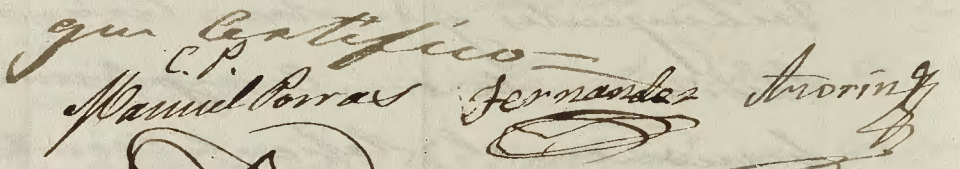 que Certifico
C. P.
Manuel Porras Fernandez Azorín